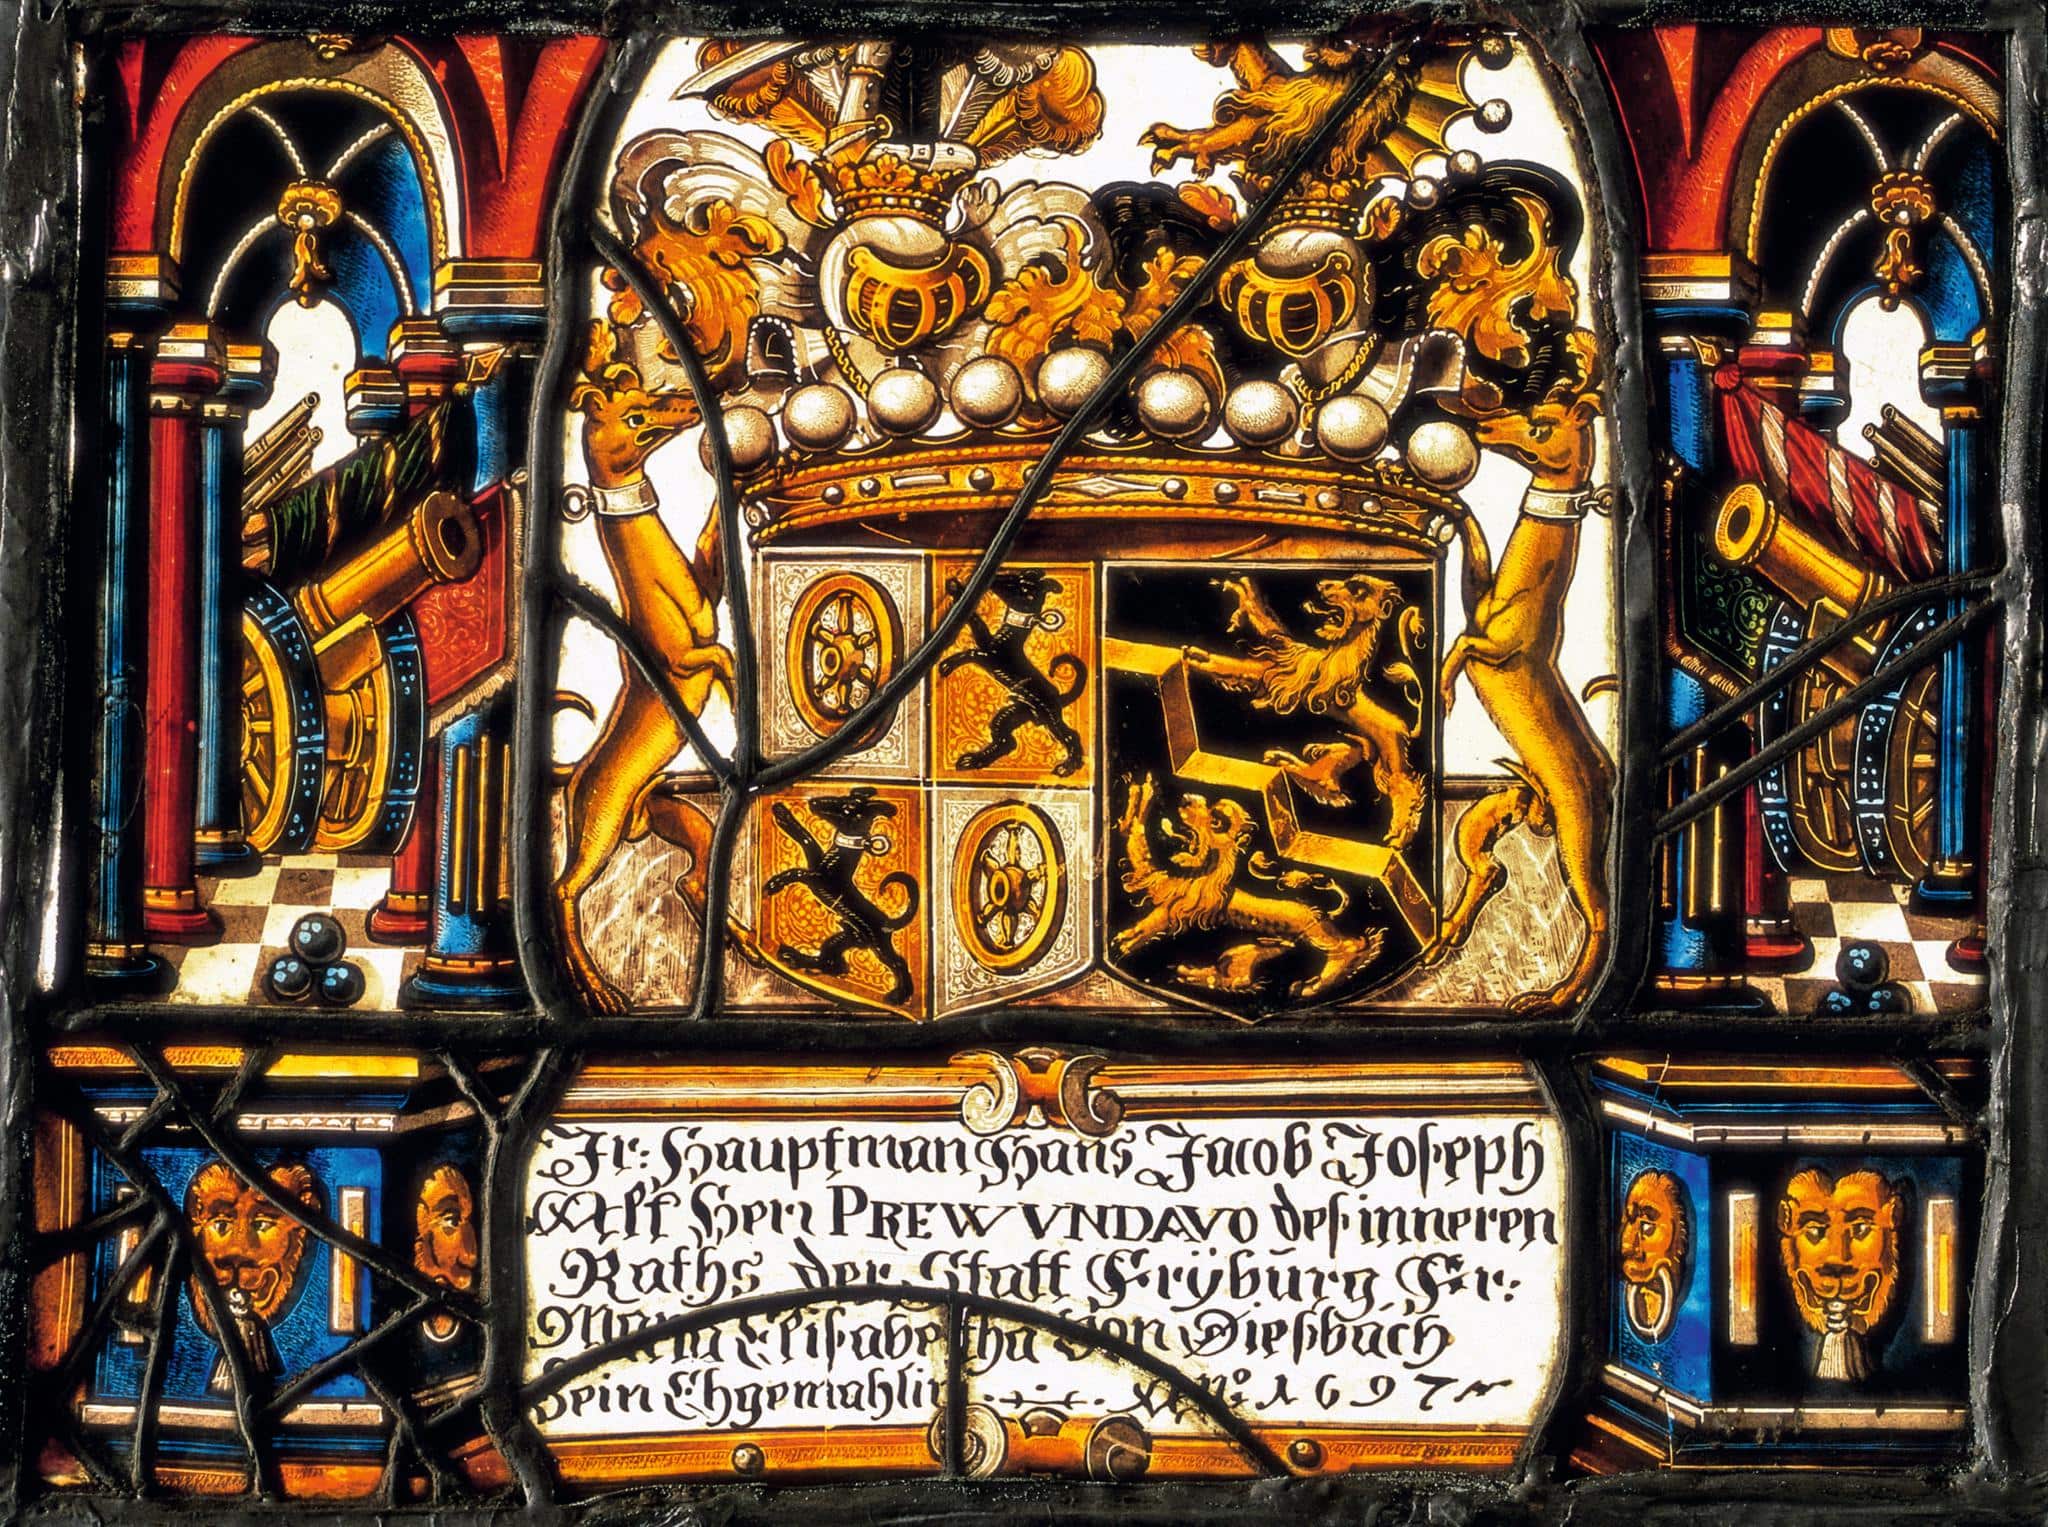 Jr: Hauptman Hans Jacob Joseph
Alt Herr PREWVNDAVO des inneren
Raths der Statt Frÿbürg Fr:
Maria Elisabetha Von Diesbach
Sein Ehgemahlin Aº. 1697